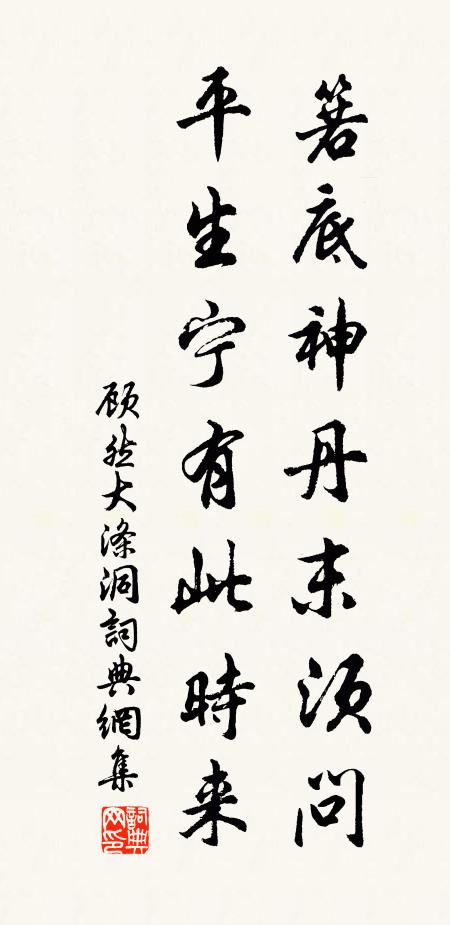 箬底神丹未须问
平生宁有此時来
顾然大涤洞詞典網集
詞典网印